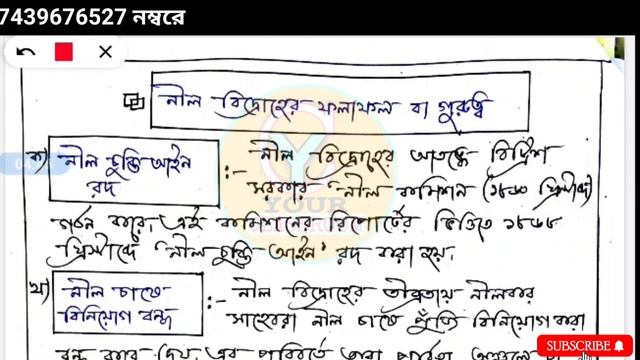 7439676527 নম্বরে
নীল বিদ্রোহের ফলাফল বা গুরুত্ব
ক) নীল চুক্তি আইন রদ :- নীল বিদ্রোহের আতঙ্কে ব্রিটিশ
সরকার "নীল কমিশন (১৮৬০ খ্রিস্টাব্দে)
গঠন করে। এই কমিশনের রিপোর্টের ভিত্তিতে ১৮৬৮
খ্রিস্টাব্দে "নীল চুক্তি আইন" রদ করা হয়।
খ) নীল চাষে বিনিয়োগ বন্ধ :- নীল বিদ্রোহের তীব্রতায় নীলকর
সাহেবরা নীল চাষে পুঁজি বিনিয়োগ করা
বন্ধ করে দেয়। এর পরিবর্তে তারা
SUBSCRIBE